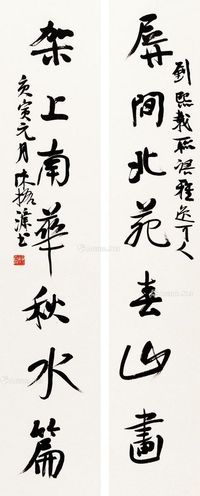 屏间北苑春山画
刘熙载联语雅逸可人
架上南华秋水篇
庚寅元月